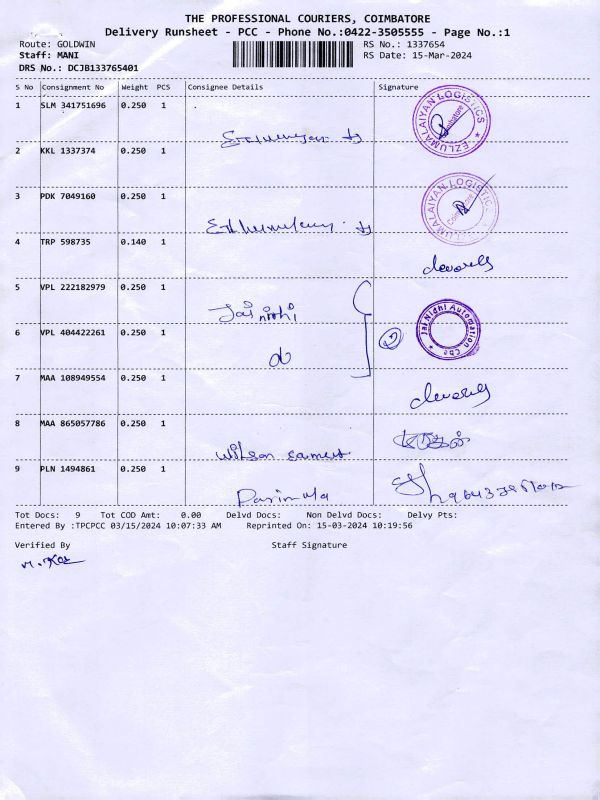 THE PROFESSIONAL COURIERS, COIMBATORE
Delivery Runsheet - PCC - Phone No.:0422-3505555 - Page No.:1
Route: GOLDWIN RS No.: 1337654
Staff: MANI RS Date: 15-Mar-2024
DRS No.: DCJB133765401
S No Consignment No Weight PCS Consignee Details Signature
1 SLM 341751696 0.250 1
EZLUMALAIYAN LOGISTICS
2 KKL 1337374 0.250 1
3 PDK 7049160 0.250 1
EZLUMALAIYAN LOGISTICS
Coimbatore
4 TRP 598735 0.140 1
5 VPL 222182979 0.250 1
Jai nidhi
Jai Nidhi Automation Cbe
6 VPL 404422261 0.250 1
7 MAA 108949554 0.250 1
8 MAA 865057786 0.250 1
9 PLN 1494861 0.250 1
Tot Docs: 9 Tot COD Amt: 0.00 Delvd Docs: Non Delvd Docs: Delvy Pts:
Entered By :TPCPCC 03/15/2024 10:07:33 AM Reprinted On: 15-03-2024 10:19:56
Verified By Staff Signature